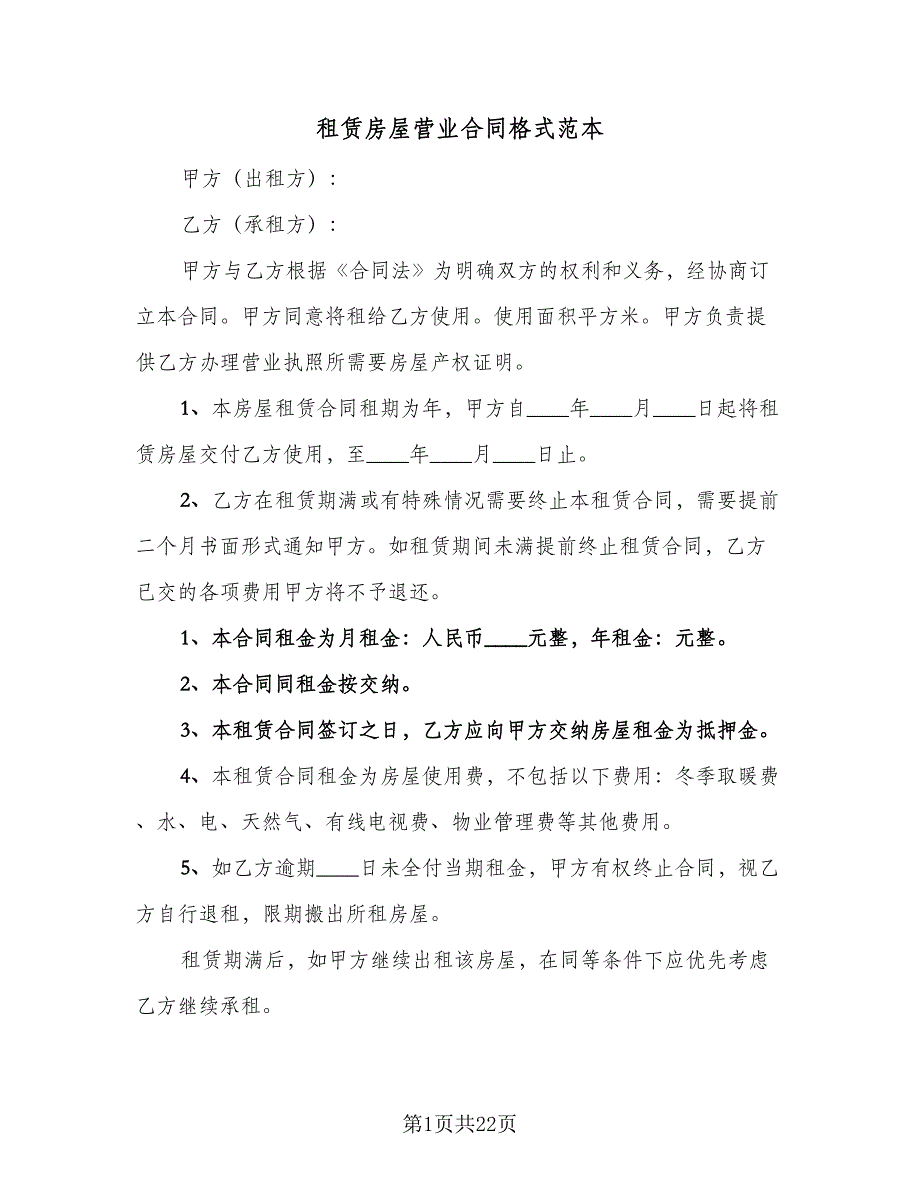 租赁房屋营业合同格式范本
甲方（出租方）：
乙方（承租方）：
甲方与乙方根据《合同法》为明确双方的权利和义务，经协商订
立本合同。甲方同意将租给乙方使用。使用面积平方米。甲方负责提
供乙方办理营业执照所需要房屋产权证明。
1、本房屋租赁合同租期为年，甲方自____年____月____日起将租
赁房屋交付乙方使用，至____年____月____日止。
2、乙方在租赁期满或有特殊情况需要终止本租赁合同，需要提前
二个月书面形式通知甲方。如租赁期间未满提前终止租赁合同，乙方
已交的各项费用甲方将不予退还。
1、本合同租金为月租金：人民币____元整，年租金：元整。
2、本合同同租金按交纳。
3、本租赁合同签订之日，乙方应向甲方交纳房屋租金为抵押金。
4、本租赁合同租金为房屋使用费，不包括以下费用：冬季取暖费
、水、电、天然气、有线电视费、物业管理费等其他费用。
5、如乙方逾期____日未全付当期租金，甲方有权终止合同，视乙
方自行退租，限期搬出所租房屋。
租赁期满后，如甲方继续出租该房屋，在同等条件下应优先考虑
乙方继续承租。
第1页共22页